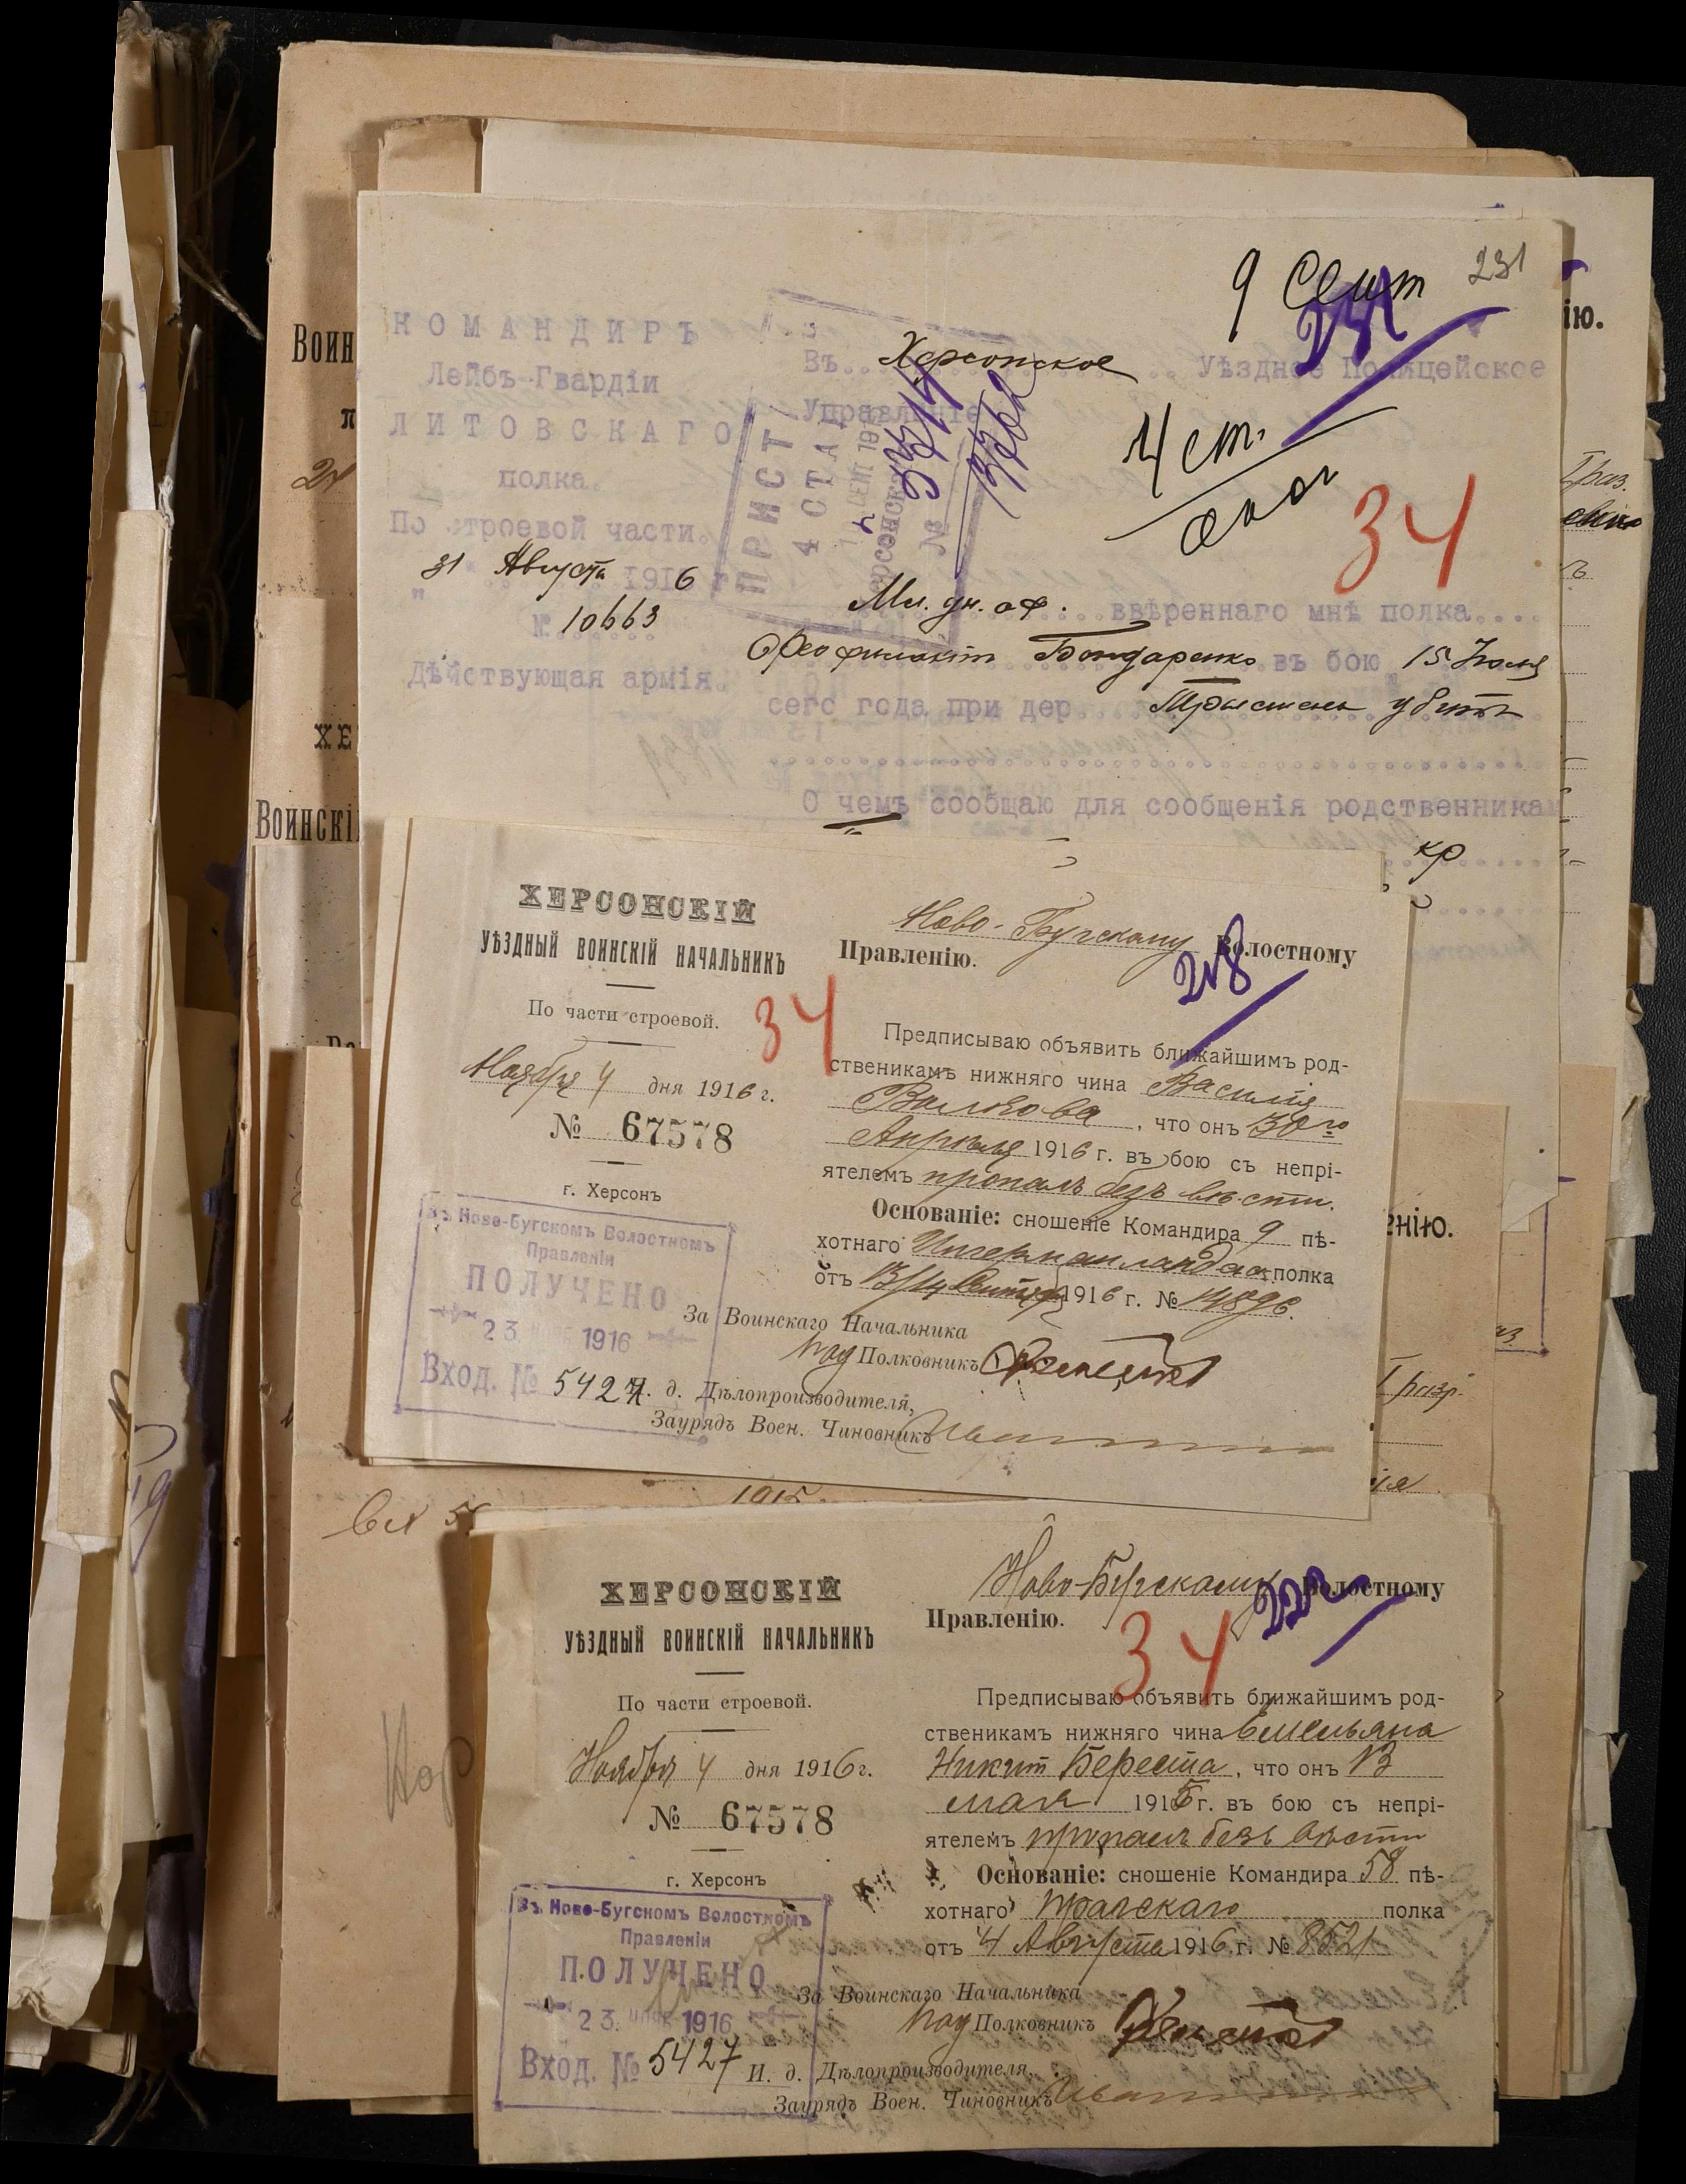 9 Сент
231
231
КОМАНДИРЪ
Лейбъ-Гвардіи
ЛИТОВСКАГО
полка.
По строевой части.
31 Августа 1916 г.
№ 10663
Дѣйствующая армія.
Въ Херсонское Уѣздное Полицейское
Управленіе
ПРИСТ
4 СТАН
№
4 ст.
34
Мл. ун. оф. ввѣреннаго мнѣ полка
Феофилактъ Бондаренко въ бою 15 Іюля
сего года при дер. Трыстень убитъ
О чемъ сообщаю для сообщенія родственникам
кр
Воин
24
ХЕ
Воинскі
ію.
1 раз.
ХЕРСОНСКІЙ
УѢЗДНЫЙ ВОИНСКІЙ НАЧАЛЬНИКЪ
По части строевой.
Ноября 4 дня 1916 г.
№ 67578
г. Херсонъ
34
Ново-Бугскому Волостному
Правленію.
218
Предписываю объявить ближайшимъ род-
ственикамъ нижняго чина Василія
Волкова, что онъ 30го
Апрѣля 1916 г. въ бою съ непрі-
ятелемъ пропалъ безъ вѣсти.
Основаніе: сношеніе Командира 9 пѣ-
хотнаго Ингерманландск. полка
отъ 13/14 Сентяб 1916 г. № 14896.
За Воинскаго Начальника
Под Полковникъ
И. д. Дѣлопроизводителя,
Заурядъ Воен. Чиновникъ
Въ Ново-Бугскомъ Волостномъ
Правленіи
ПОЛУЧЕНО
23 НОЯБ 1916
Вход. № 5427
енію.
1 разр.
1915
Вх 5
ХЕРСОНСКІЙ
УѢЗДНЫЙ ВОИНСКІЙ НАЧАЛЬНИКЪ
По части строевой.
Ноября 4 дня 1916 г.
№ 67578
г. Херсонъ
Ново-Бугскому Волостному
Правленію.
220
34
Предписываю объявить ближайшимъ род-
ственикамъ нижняго чина Емельяна
Никит Береста, что онъ 13
мая 1915 г. въ бою съ непрі-
ятелемъ пропалъ безъ вѣсти
Основаніе: сношеніе Командира 58 пѣ-
хотнаго Прагскаго полка
отъ 4 Августа 1916 г. № 8521
За Воинскаго Начальника
Под Полковникъ
И. д. Дѣлопроизводителя,
Заурядъ Воен. Чиновникъ
Въ Ново-Бугскомъ Волостномъ
Правленіи
ПОЛУЧЕНО
23 НОЯБ 1916
Вход. № 5427